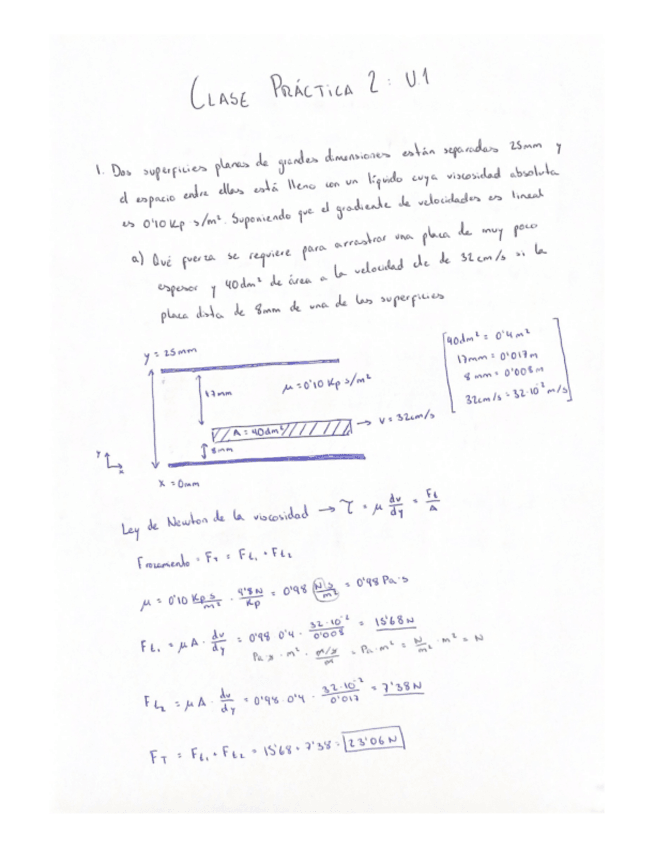 CLASE PRÁCTICA 2: U.1
1. Dos superficies planas de grandes dimensiones están separadas 25mm y
el espacio entre ellas está lleno con un líquido cuya viscosidad absoluta
es 0'10 Kp s/m². Suponiendo que el gradiente de velocidades es lineal
a) Qué fuerza se requiere para arrastrar una placa de muy poco
espesor y 40dm² de área a la velocidad cte de 32cm/s si la
placa dista de 8mm de una de las superficies
y = 25mm
17mm
μ = 0'10 Kp s/m²
A = 40dm²
v = 32cm/s
8mm
y
x
x = 0mm
40dm² = 0'4m²
17mm = 0'017m
8mm = 0'008m
32cm/s = 32·10⁻² m/s
Ley de Newton de la viscosidad → τ = μ dv/dy = Ft/A
Rozamiento = FT = Ft₁ + Ft₂
μ = 0'10 Kp s/m² · 9'8N/Kp = 0'98 N s/m² = 0'98 Pa·s
Ft₁ = μ A · dv/dy = 0'98 · 0'4 · 32·10⁻²/0'008 = 15'68 N
Pa·s · m² · m/s/m = Pa·m² = N/m² · m² = N
Ft₂ = μ A · dv/dy = 0'98 · 0'4 · 32·10⁻²/0'017 = 7'38N
FT = Ft₁ + Ft₂ = 15'68 + 7'38 = 23'06 N